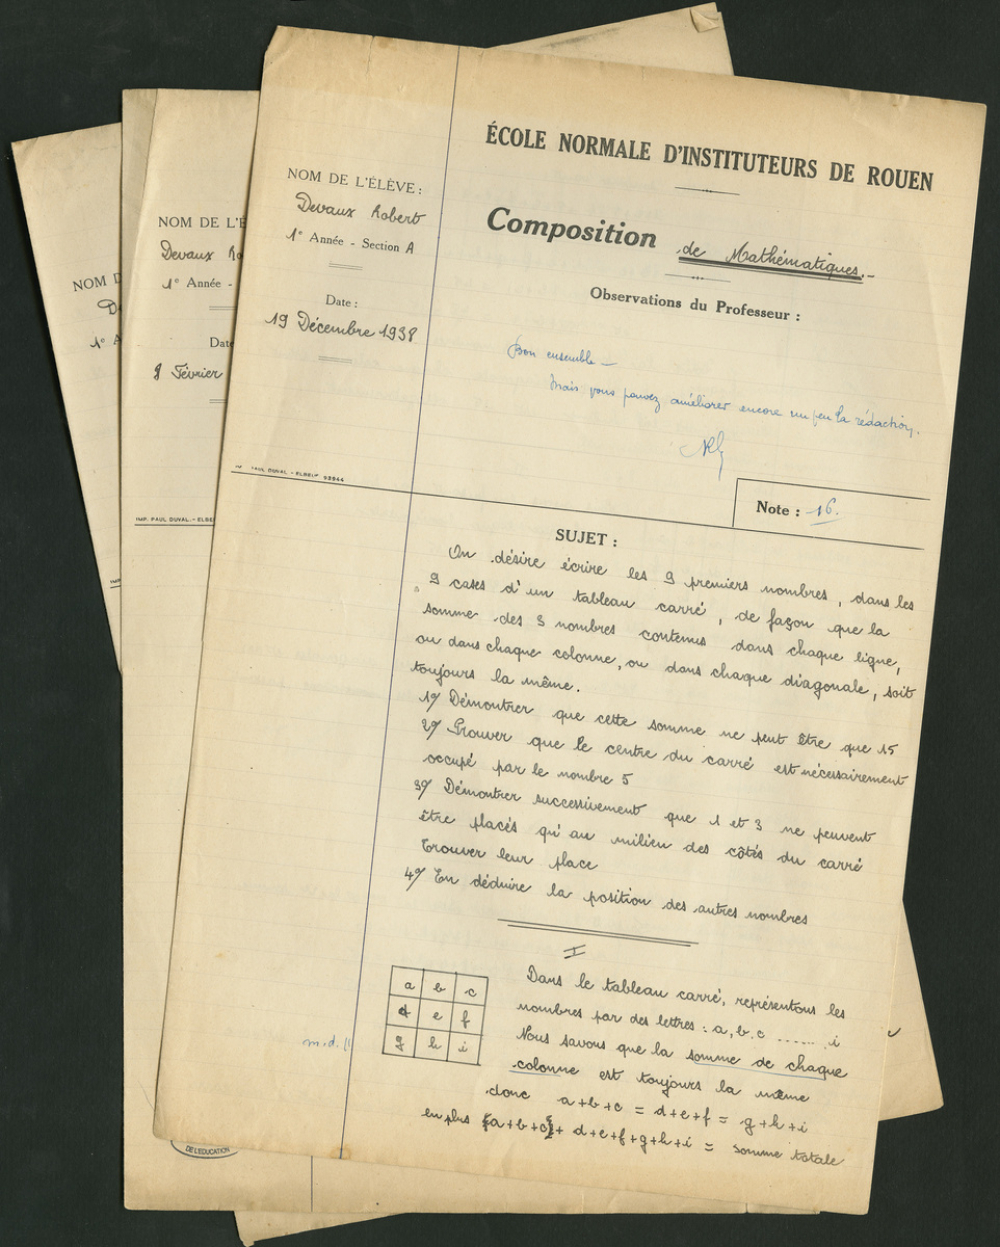 ÉCOLE NORMALE D'INSTITUTEURS DE ROUEN
NOM DE L'ÉLÈVE :
Devaux Robert
1e Année - Section A
Date :
19 Décembre 1938
Composition de Mathématiques.-
Observations du Professeur :
Bon ensemble —
Mais vous pouvez améliorer encore un peu la rédaction.
PAUL DUVAL - ELBEUF
Note : 16.
SUJET :
On désire écrire les 9 premiers nombres, dans les
9 cases d'un tableau carré, de façon que la
somme des 3 nombres contenus dans chaque ligne,
ou dans chaque colonne, ou dans chaque diagonale, soit
toujours la même.
1°/ Démontrer que cette somme ne peut être que 15
2°/ Prouver que le centre du carré est nécessairement
occupé par le nombre 5
3°/ Démontrer successivement que 1 et 3 ne peuvent
être placés qu'au milieu des côtés du carré
Trouver leur place
4°/ En déduire la position des autres nombres
I
a b c
d e f
g h i
Dans le tableau carré, représentons les
nombres par des lettres : a, b, c ...... i
Nous savons que la somme de chaque
colonne est toujours la même
donc a+b+c = d+e+f = g+h+i
en plus (a+b+c)+ d+e+f+g+h+i = somme totale
m.d.
NOM DE L'É
Devaux Ro
1e Année -
Date
9 Février
IMP. PAUL DUVAL - ELBE
NOM D
D
1e A
IMP
DE L'EDUCATION